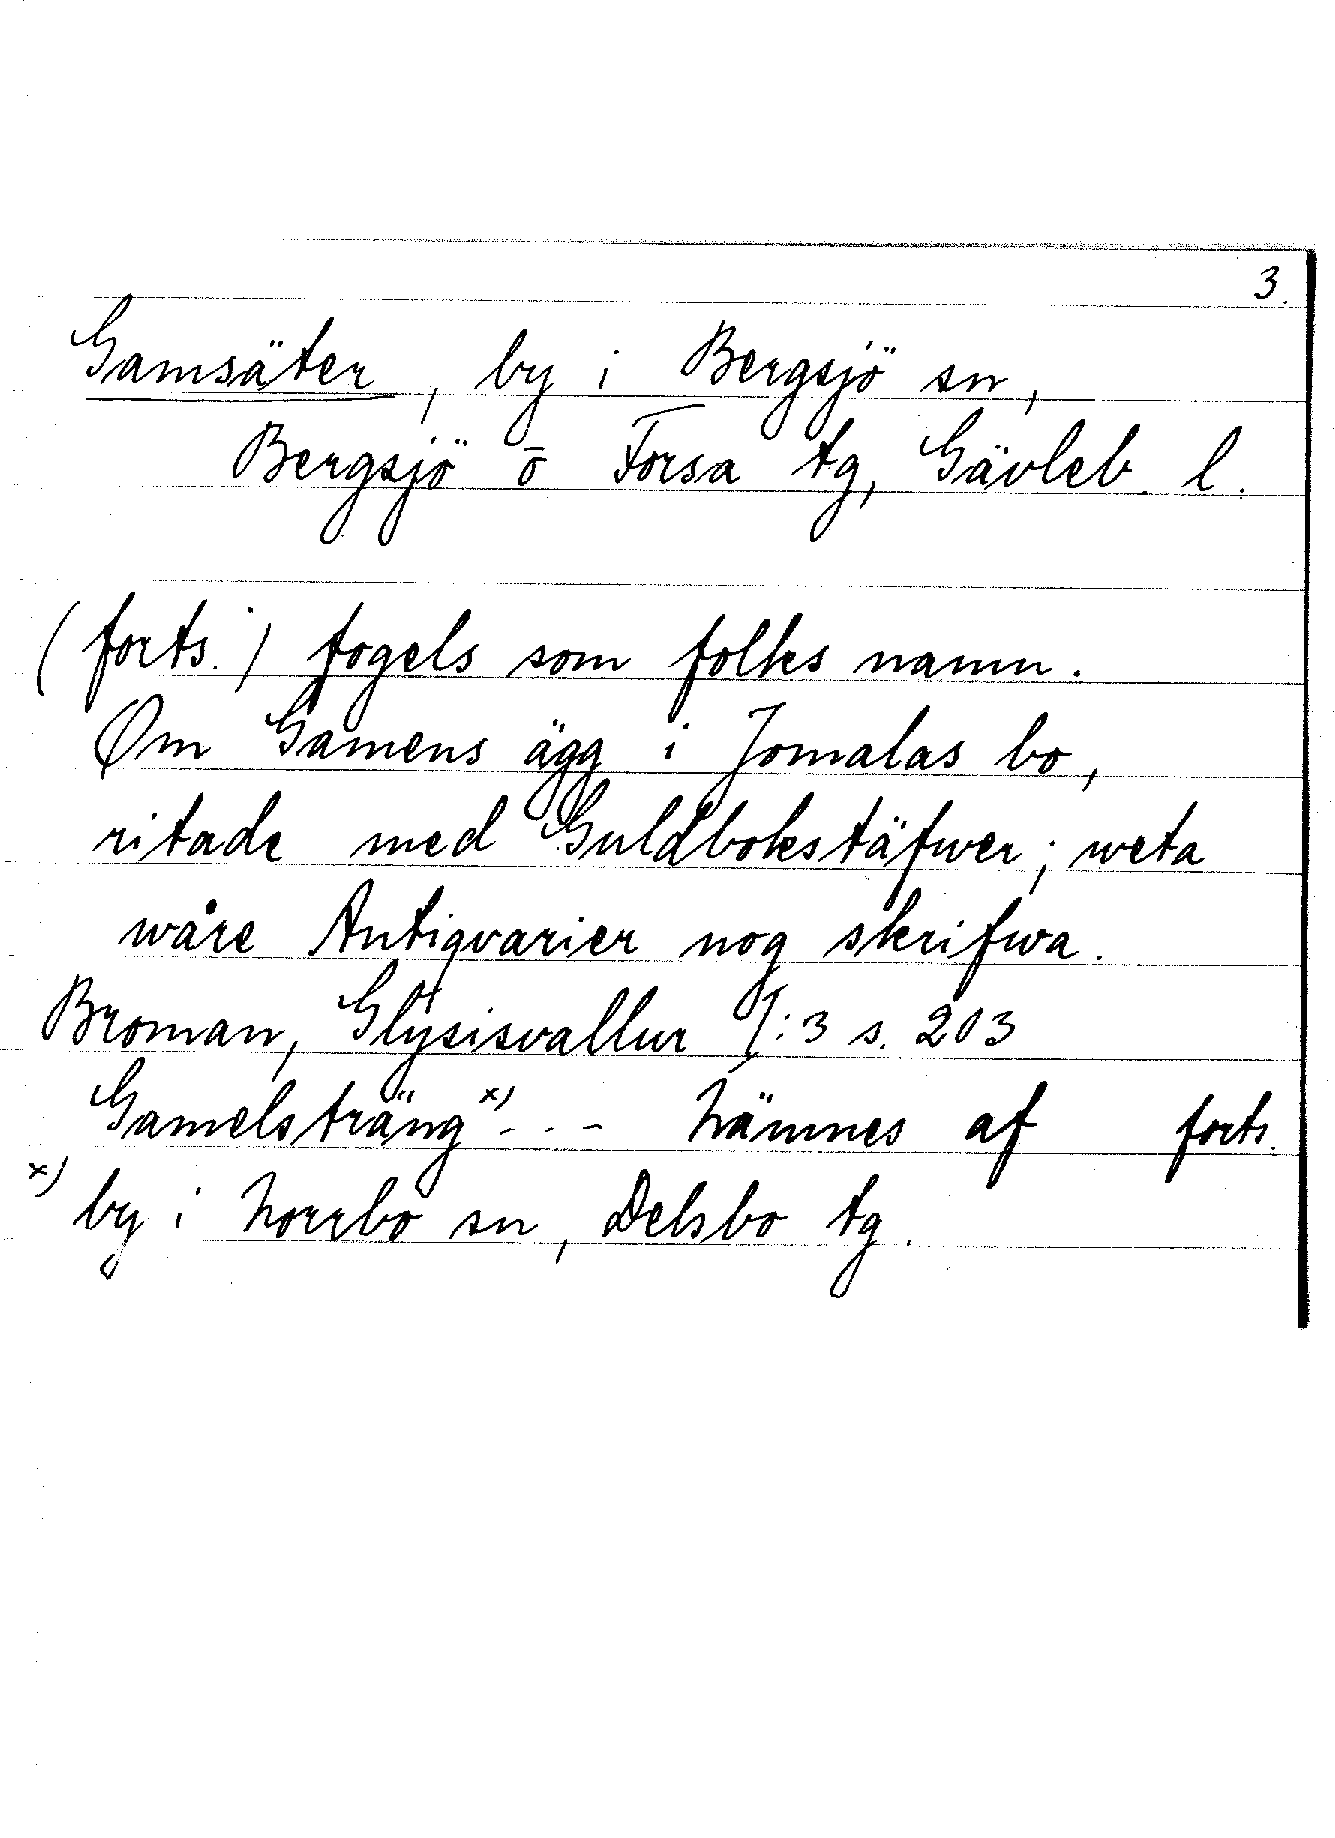 3.
Gamsäter, by i Bergsjö sn,
Bergsjö o Forsa tg, Gävleb. l.
(forts.) fogels som folks namn.
Om Gamens ägg i Jomalas bo,
ritade med Guldbokstäfwer; weta
wåre Antiqvarier nog skrifwa.
Broman, Glysisvallur I:3 s. 203
Gamelsträng x) - - - Nämnes af forts.
x) by i Norrbo sn, Delsbo tg.